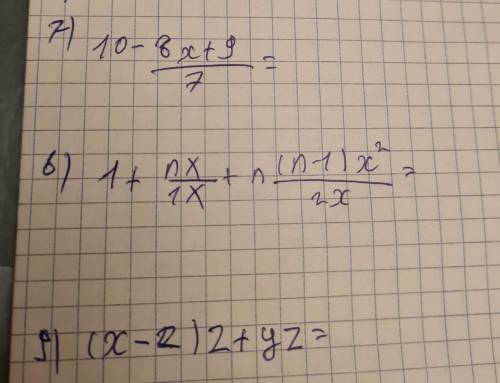 7) 10 - (8x+9)/7 =
8) 1 + nx/1x + n (n-1)x²/2x =
9) (x-2)2+yz=